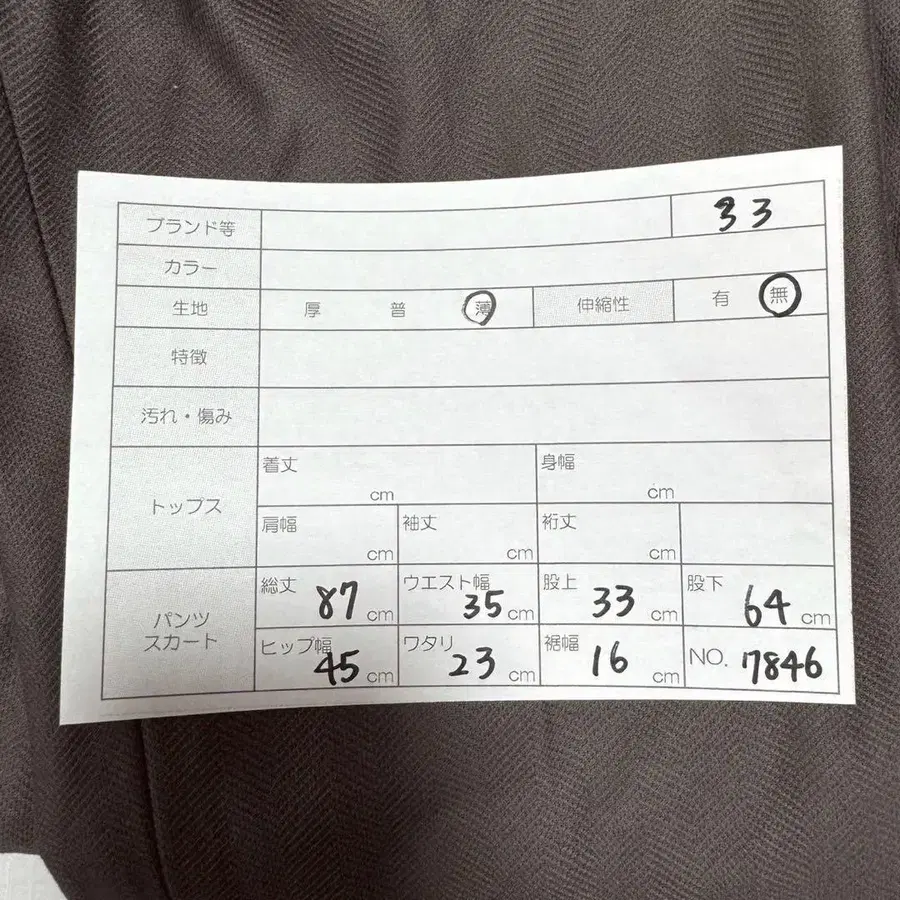 ブランド等 33
カラー
生地 厚 普 薄 伸縮性 有 無
特徴
汚れ・傷み
トップス
着丈 cm 身幅 cm
肩幅 cm 袖丈 cm 裄丈 cm
パンツ
スカート
総丈 87 cm ウエスト幅 35 cm 股上 33 cm 股下 64 cm
ヒップ幅 45 cm ワタリ 23 cm 裾幅 16 cm NO. 7846